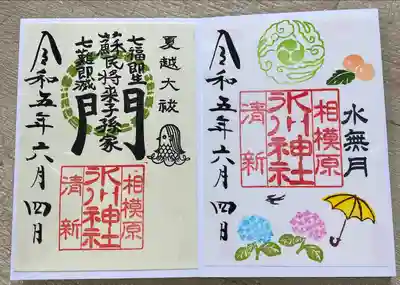 水無月
相模原
氷川神社
清新
令和五年六月四日
夏越大祓
七福即生
蘇民将来子孫家
七難即滅
門
相模原
氷川神社
清新
令和五年六月四日